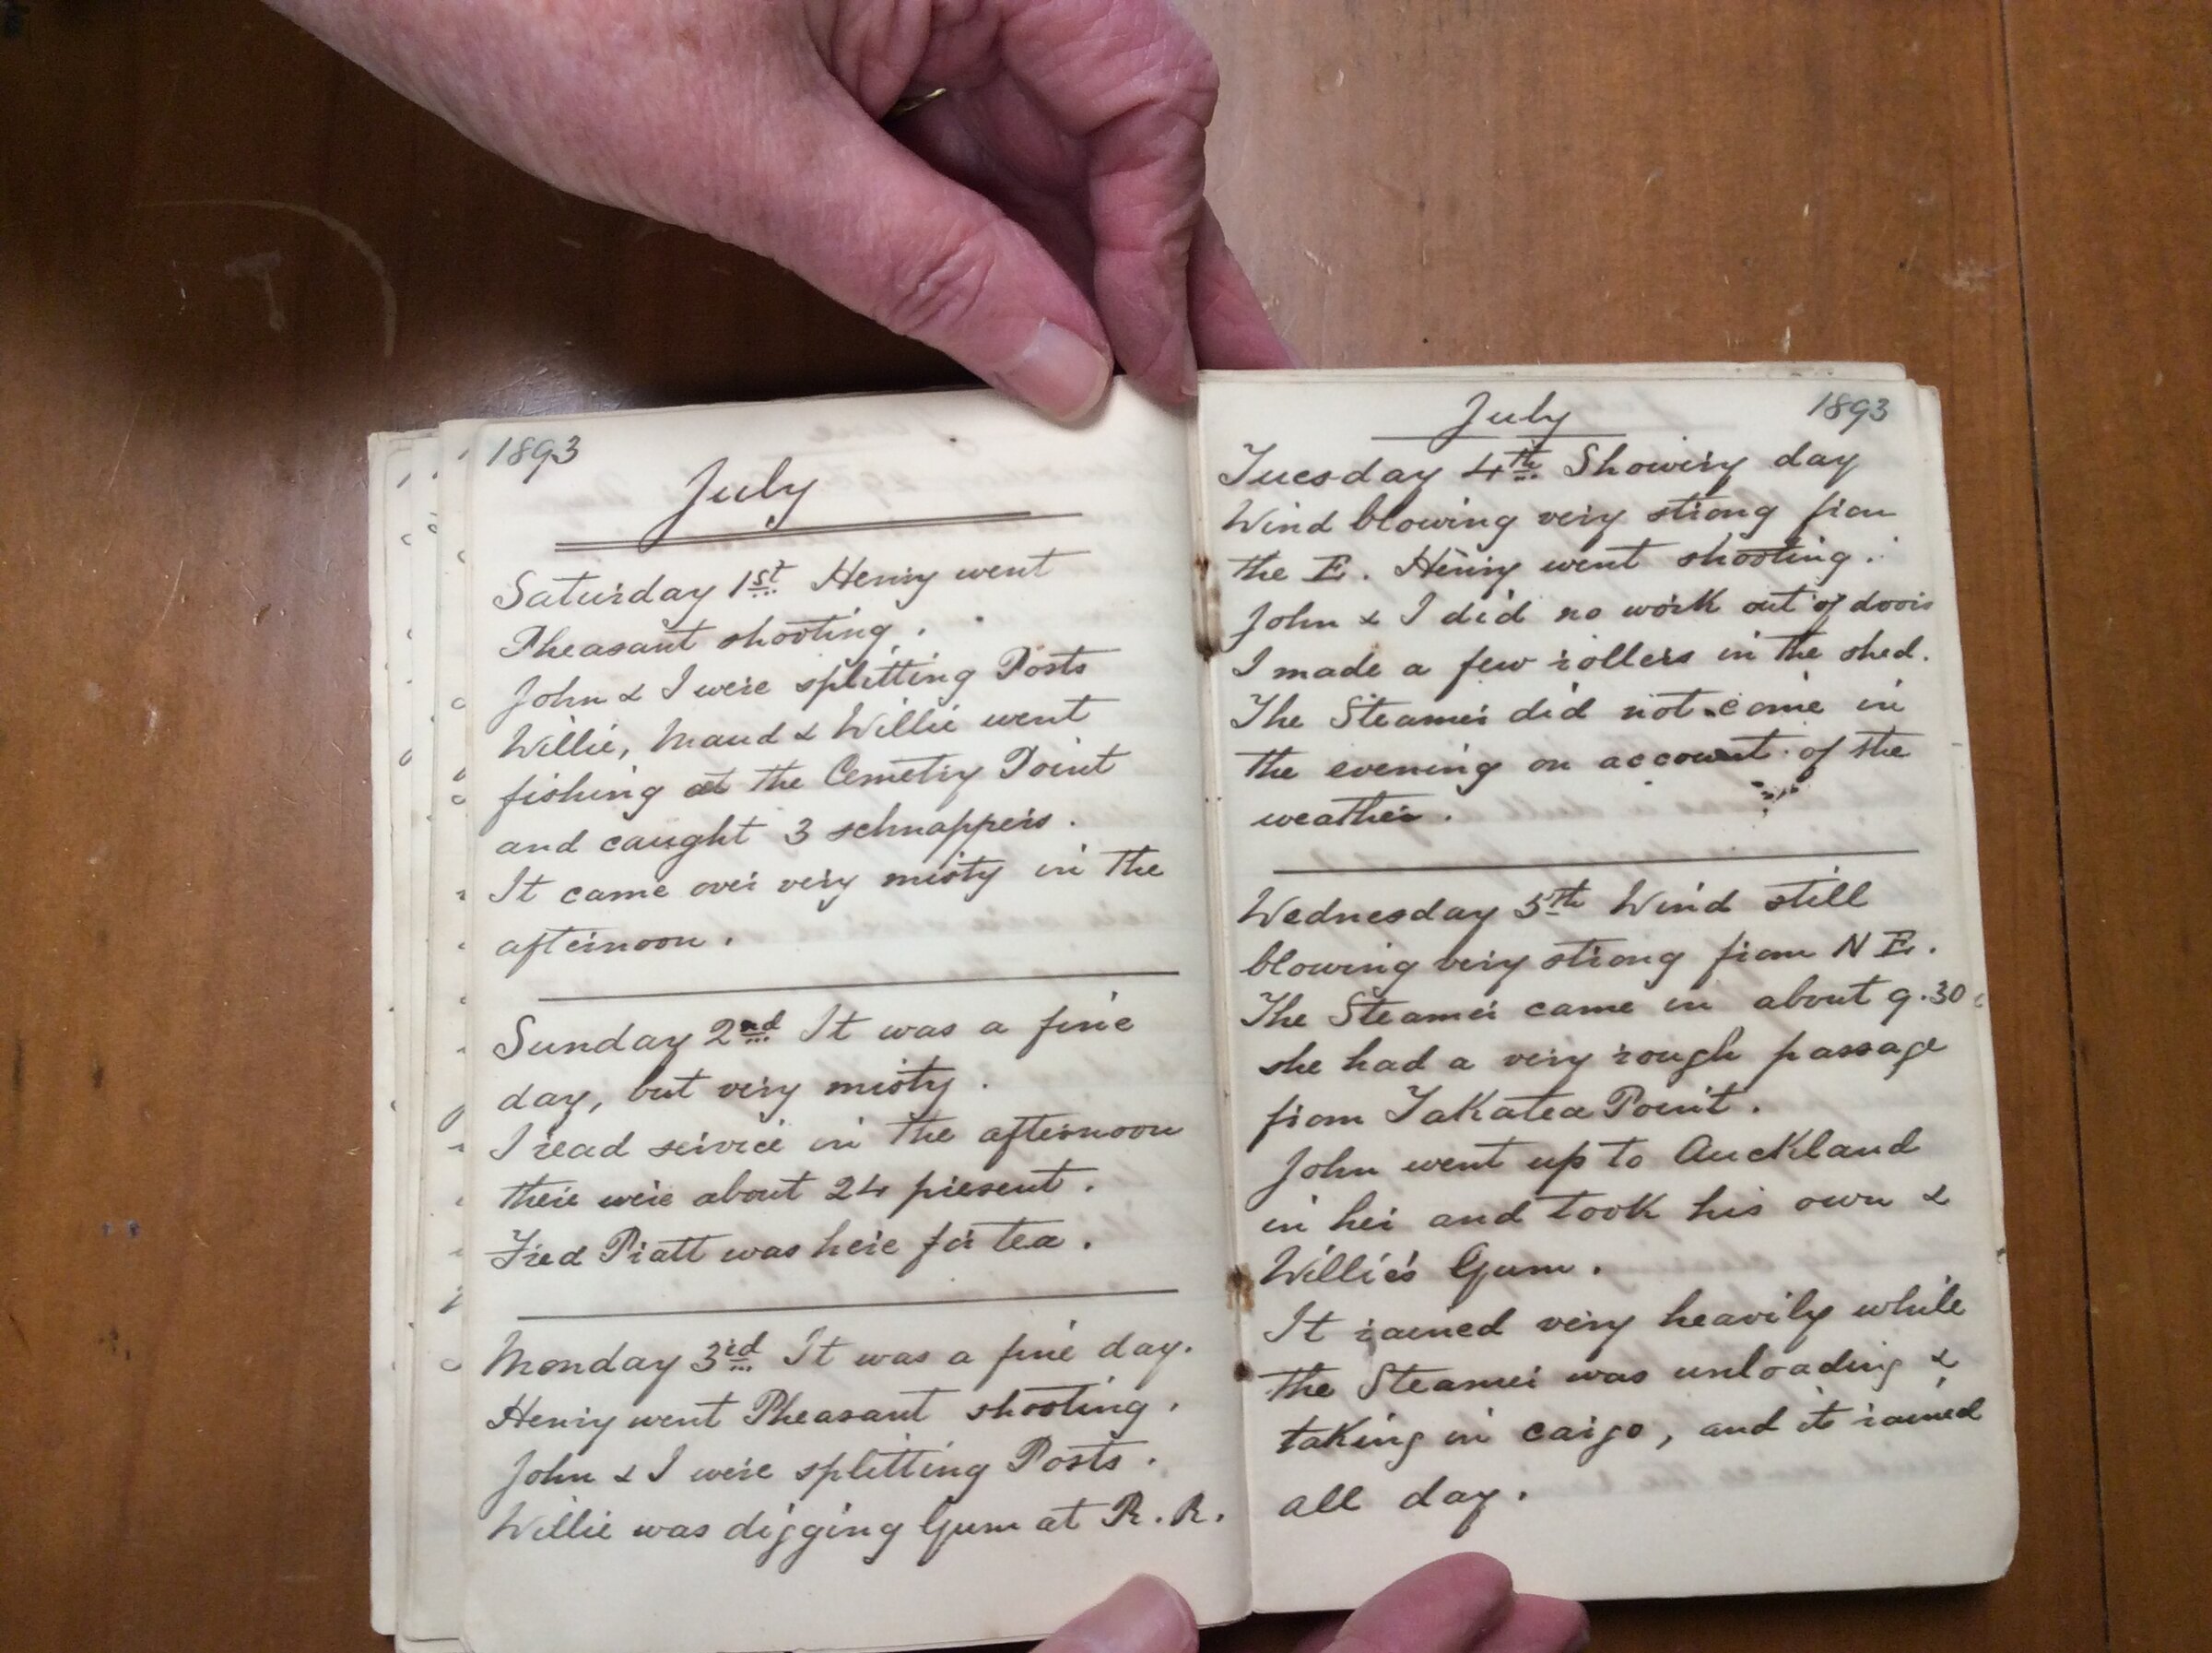 1893
July
Saturday 1st Henry went
Pheasant shooting.
John & I were splitting Posts
Willie, Maud & Willie went
fishing at the Cemetry Point
and caught 3 schnappers.
It came over very misty in the
afternoon.
Sunday 2nd It was a fine
day, but very misty.
I read service in the afternoon
there were about 24 present.
Fred Pratt was here for tea.
Monday 3rd It was a fine day.
Henry went Pheasant shooting.
John & I were splitting Posts.
Willie was digging Gum at R.R.
July 1893
Tuesday 4th Showery day
Wind blowing very strong from
the E. Henry went shooting.
John & I did no work out of doors
I made a few rollers in the shed.
The Steamer did not come in
the evening on account of the
weather.
Wednesday 5th Wind still
blowing very strong from N E.
The Steamer came in about 9.30
she had a very rough passage
from Takatea Point.
John went up to Auckland
in her and took his own &
Willie's Gum.
It rained very heavily while
the Steamer was unloading &
taking in cargo, and it rained
all day.